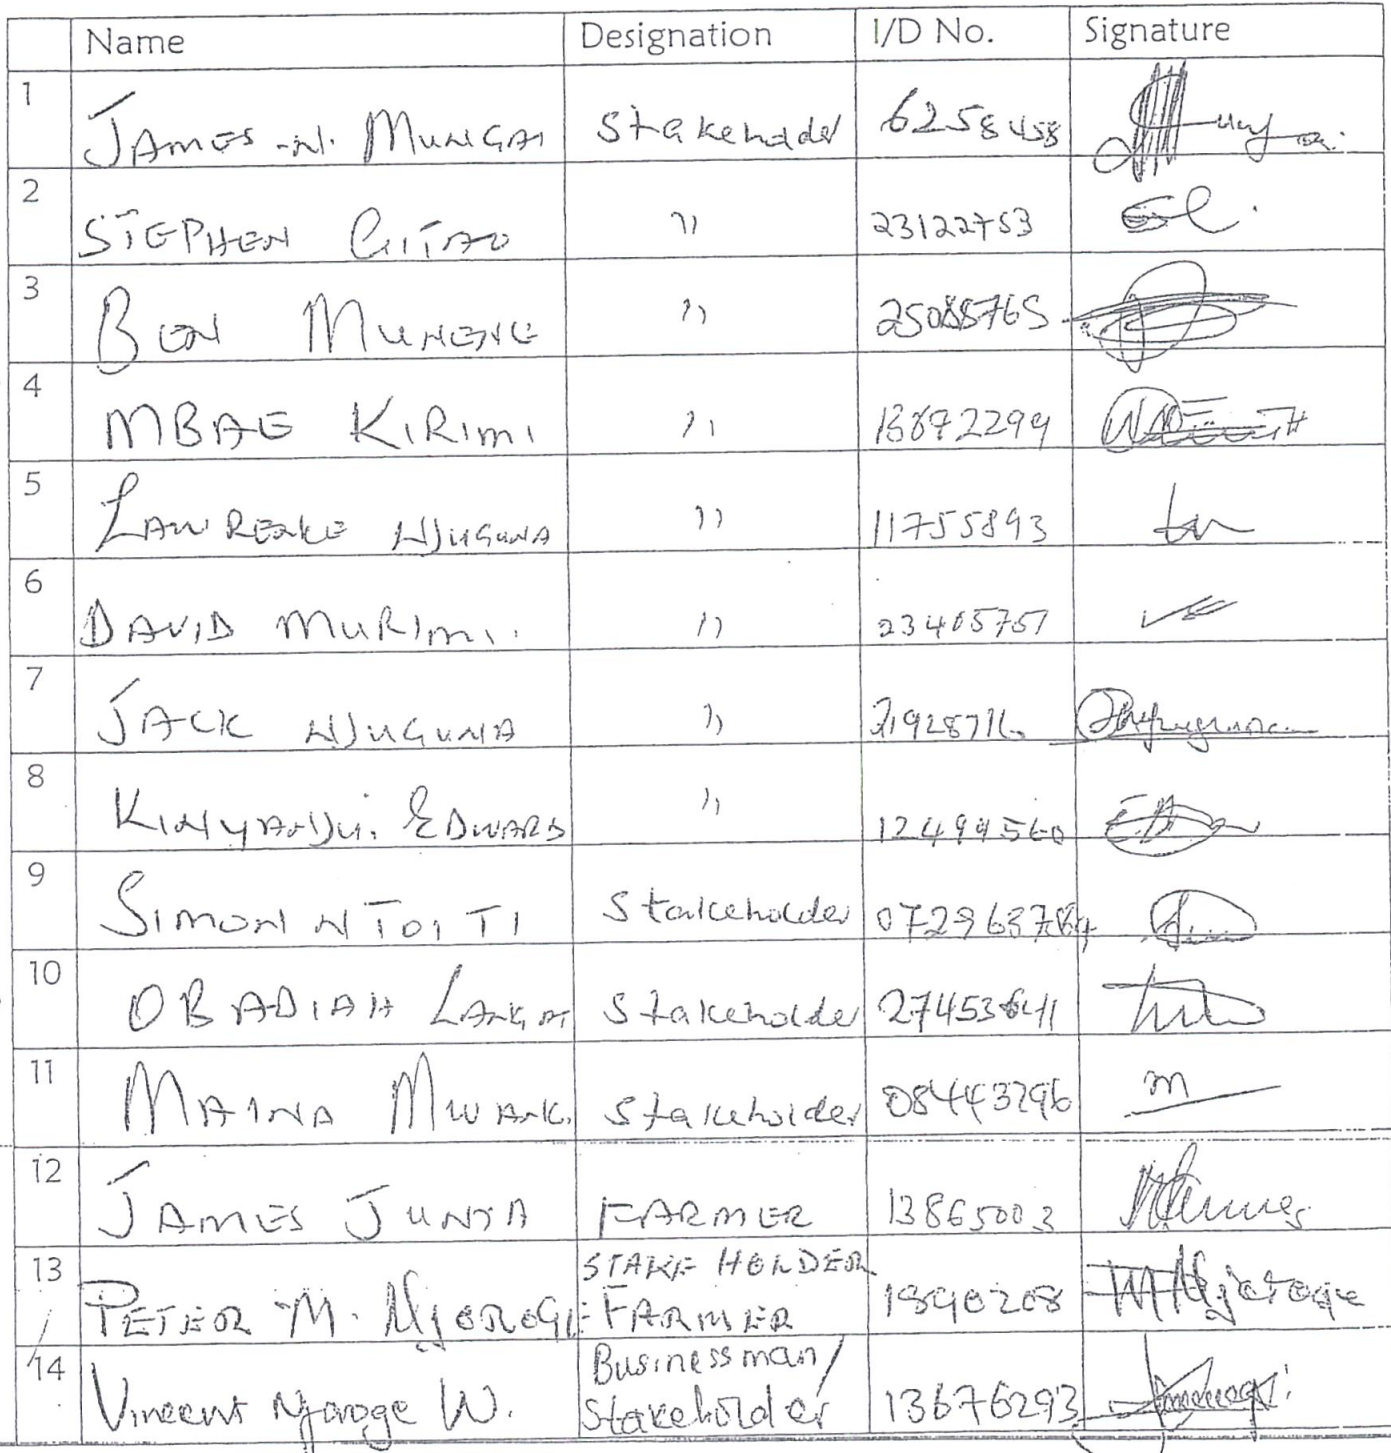 Name Designation I/D No. Signature
1 JAMES N. MUNGAI Stakeholder 6258458
2 STEPHEN GITAO " 23122753
3 BEN MUNENE " 25088765
4 MBAE KIRIMI " 13872299
5 LAWRENCE NJUGUNA " 11755893
6 DAVID MURIMI. " 23405751
7 JACK NJUGUNA " 21928716
8 KINYANJUI EDWARD " 12499560
9 SIMON NTOITI Stakeholder
10 OBADIAH LANGAT Stakeholder
11 MAINA MWAKI Stakeholder 08443296
12 JAMES JUNJA FARMER 13865003
13 PETER M. NJOROGE STAKE HOLDER 1890208 M Njoroge
FARMER
14 Vincent Njoroge W. Businessman/ 13676293
Stakeholder